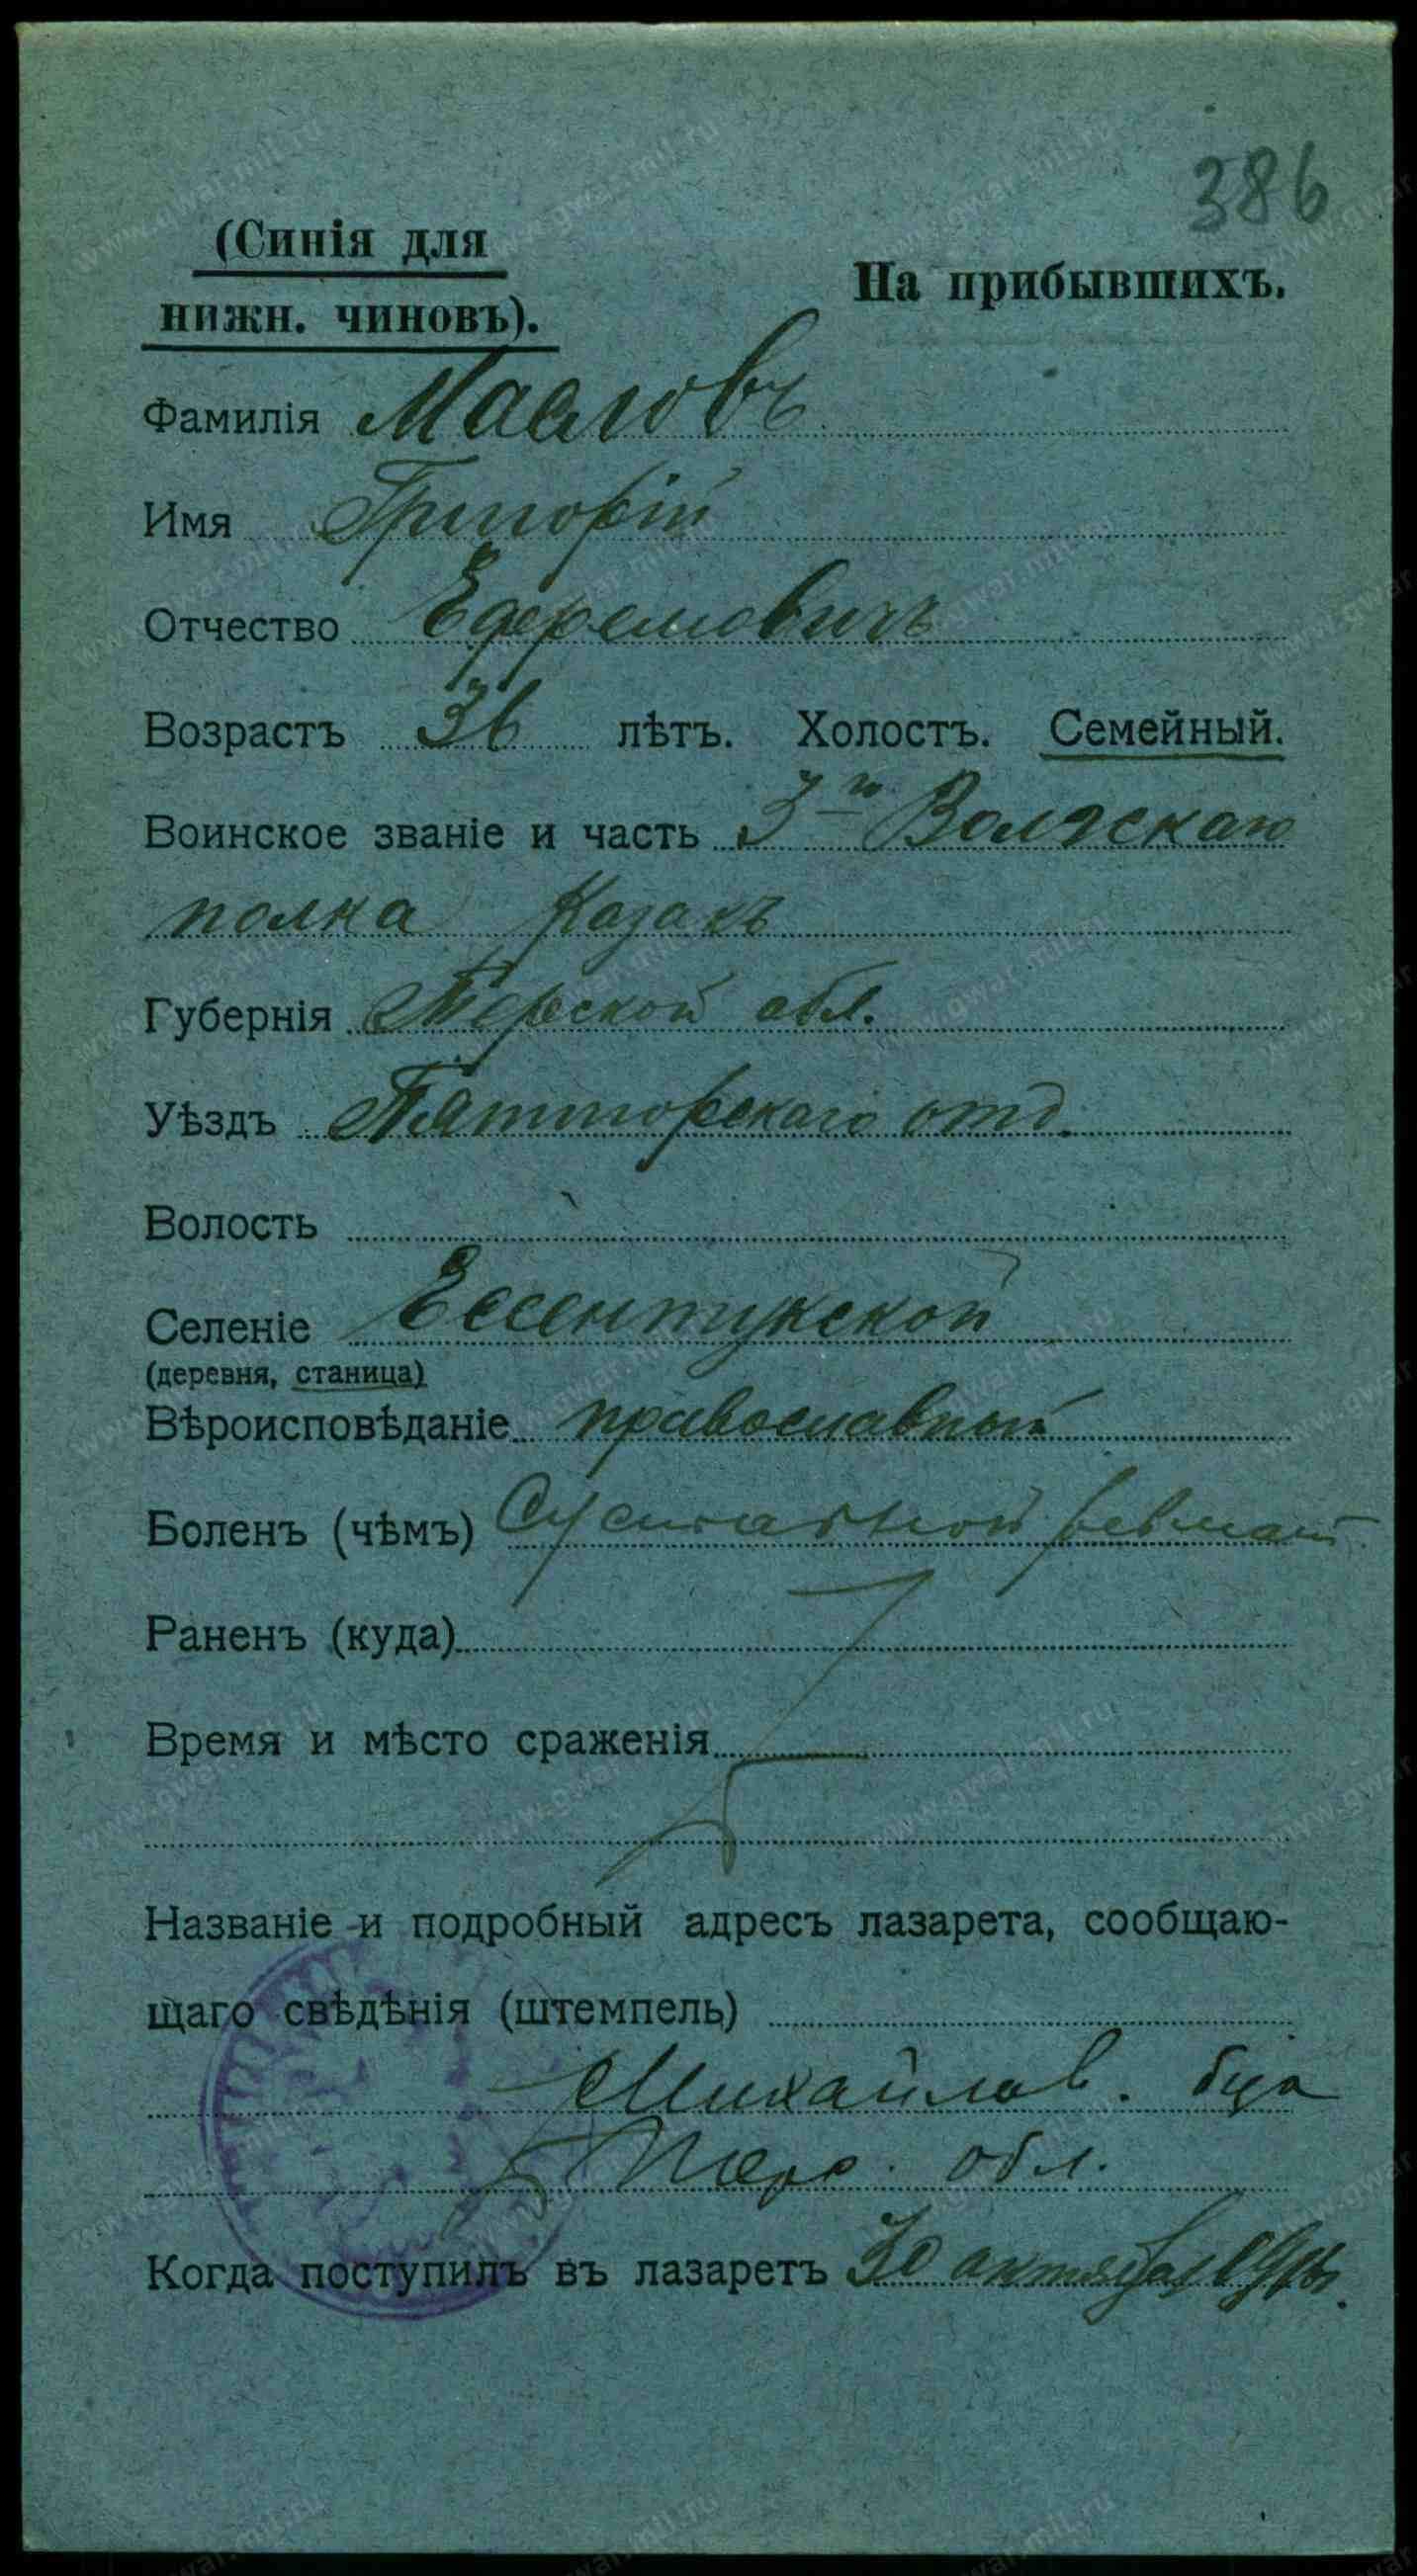 386
(Синія для
нижн. чиновъ).
На прибывшихъ.
Фамилія Масловъ
Имя Григорій
Отчество Ефремовичъ
Возрастъ 36 лѣтъ. Холостъ. Семейный.
Воинское званіе и часть 3го Волгскаго
полка Казакъ
Губернія Терской обл.
Уѣздъ Пятигорскаго отд.
Волость
Селеніе Ессентукской
(деревня, станица)
Вѣроисповѣданіе православный
Боленъ (чѣмъ) Суставной ревмат.
Раненъ (куда)
Время и мѣсто сраженія
Названіе и подробный адресъ лазарета, сообщаю-
щаго свѣдѣнія (штемпель)
Михайлов. бца
Терс. обл.
Когда поступилъ въ лазаретъ 30 октября
www.gwar.mil.ru